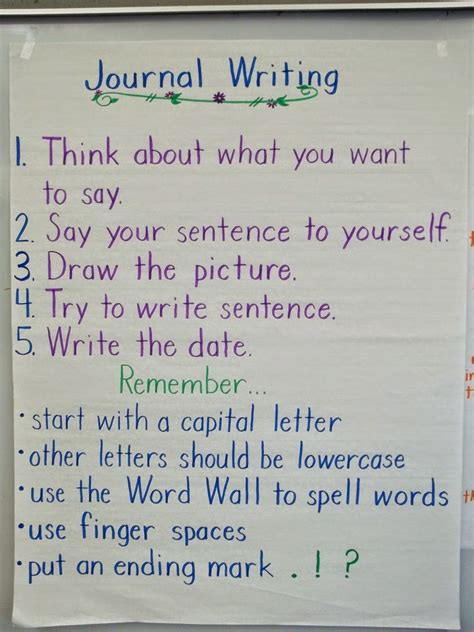 Journal Writing
1. Think about what you want
to say.
2. Say your sentence to yourself.
3. Draw the picture.
4. Try to write sentence.
5. Write the date.
Remember...
• start with a capital letter
• other letters should be lowercase
• use the Word Wall to spell words
• use finger spaces
• put an ending mark . ! ?